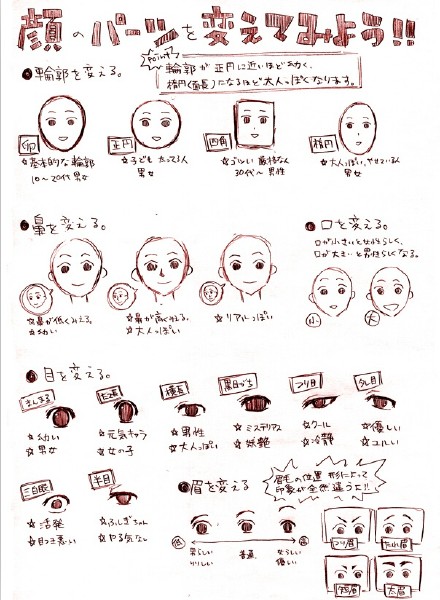 顔のパーツを変えてみよう!!
●輪郭を変える。
POINT!
輪郭が正円に近いほど幼く、
楕円(面長)になるほど大人っぽくなります。
卵
☆基本的な輪郭
10〜20代男女
正円
☆子ども 太ってる人
男女
四角
☆ゴツい 厳格な人
30代〜 男性
楕円
☆大人っぽい、やせている人
男女
●鼻を変える。
☆鼻が低くみえる。
☆幼い
☆鼻が高くみえる。
☆大人っぽい
☆リアルっぽい
●口を変える。
口が小さいと女性らしく、
口が大きいと男性らしくなる。
小
大
●目を変える。
まんまる
☆幼い
☆男女
たて長
☆元気キャラ
☆女の子
横長
☆男性
☆大人っぽい
黒目がち
☆ミステリアス
☆妖艶
つり目
☆クール
☆冷静
タレ目
☆優しい
☆ユルい
三白眼
☆活発
☆目つき悪い
半目
☆ふしぎちゃん
☆やる気なし
●眉を変える
眉毛の位置・形によって
印象が全然違うよ!!
低
高
男らしい
りりしい
普通
女らしい
優しい
つり眉
たれ眉
短眉
太眉